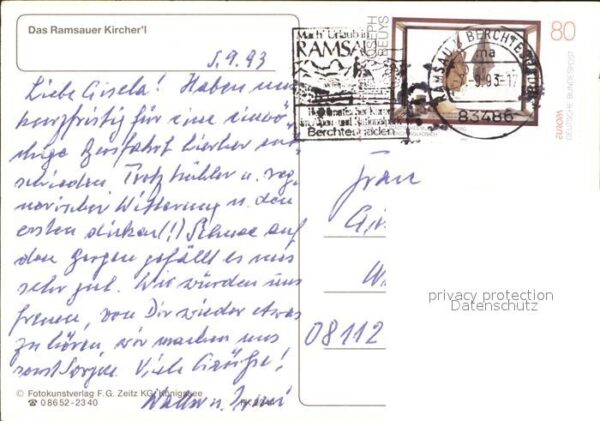 Das Ramsauer Kircher'l
5.9.93
Liebe Gisela! Haben uns
kurzfristig für eine einwö-
chige Busfahrt hierher ent-
schieden. Trotz kühler u. reg-
nerischer Witterung u. den
ersten dicken (!) Schnee auf
den Bergen gefällt es uns
sehr gut. Wir würden uns
freuen, von Dir wieder etwas
zu hören, wir machen uns
sonst Sorgen. Viele Grüße!
© Fotokunstverlag F. G. Zeitz KG, Königssee
☎ 08652-2340
Mach' Urlaub in
RAMSAU
Berchtesgaden
JOSEPH
BEUYS
80
DEUTSCHE BUNDESPOST
EUROPA
RAMSAU b BERCHTESGADEN
ma
9.93-17
83486
Frau
08112
privacy protection
Datenschutz